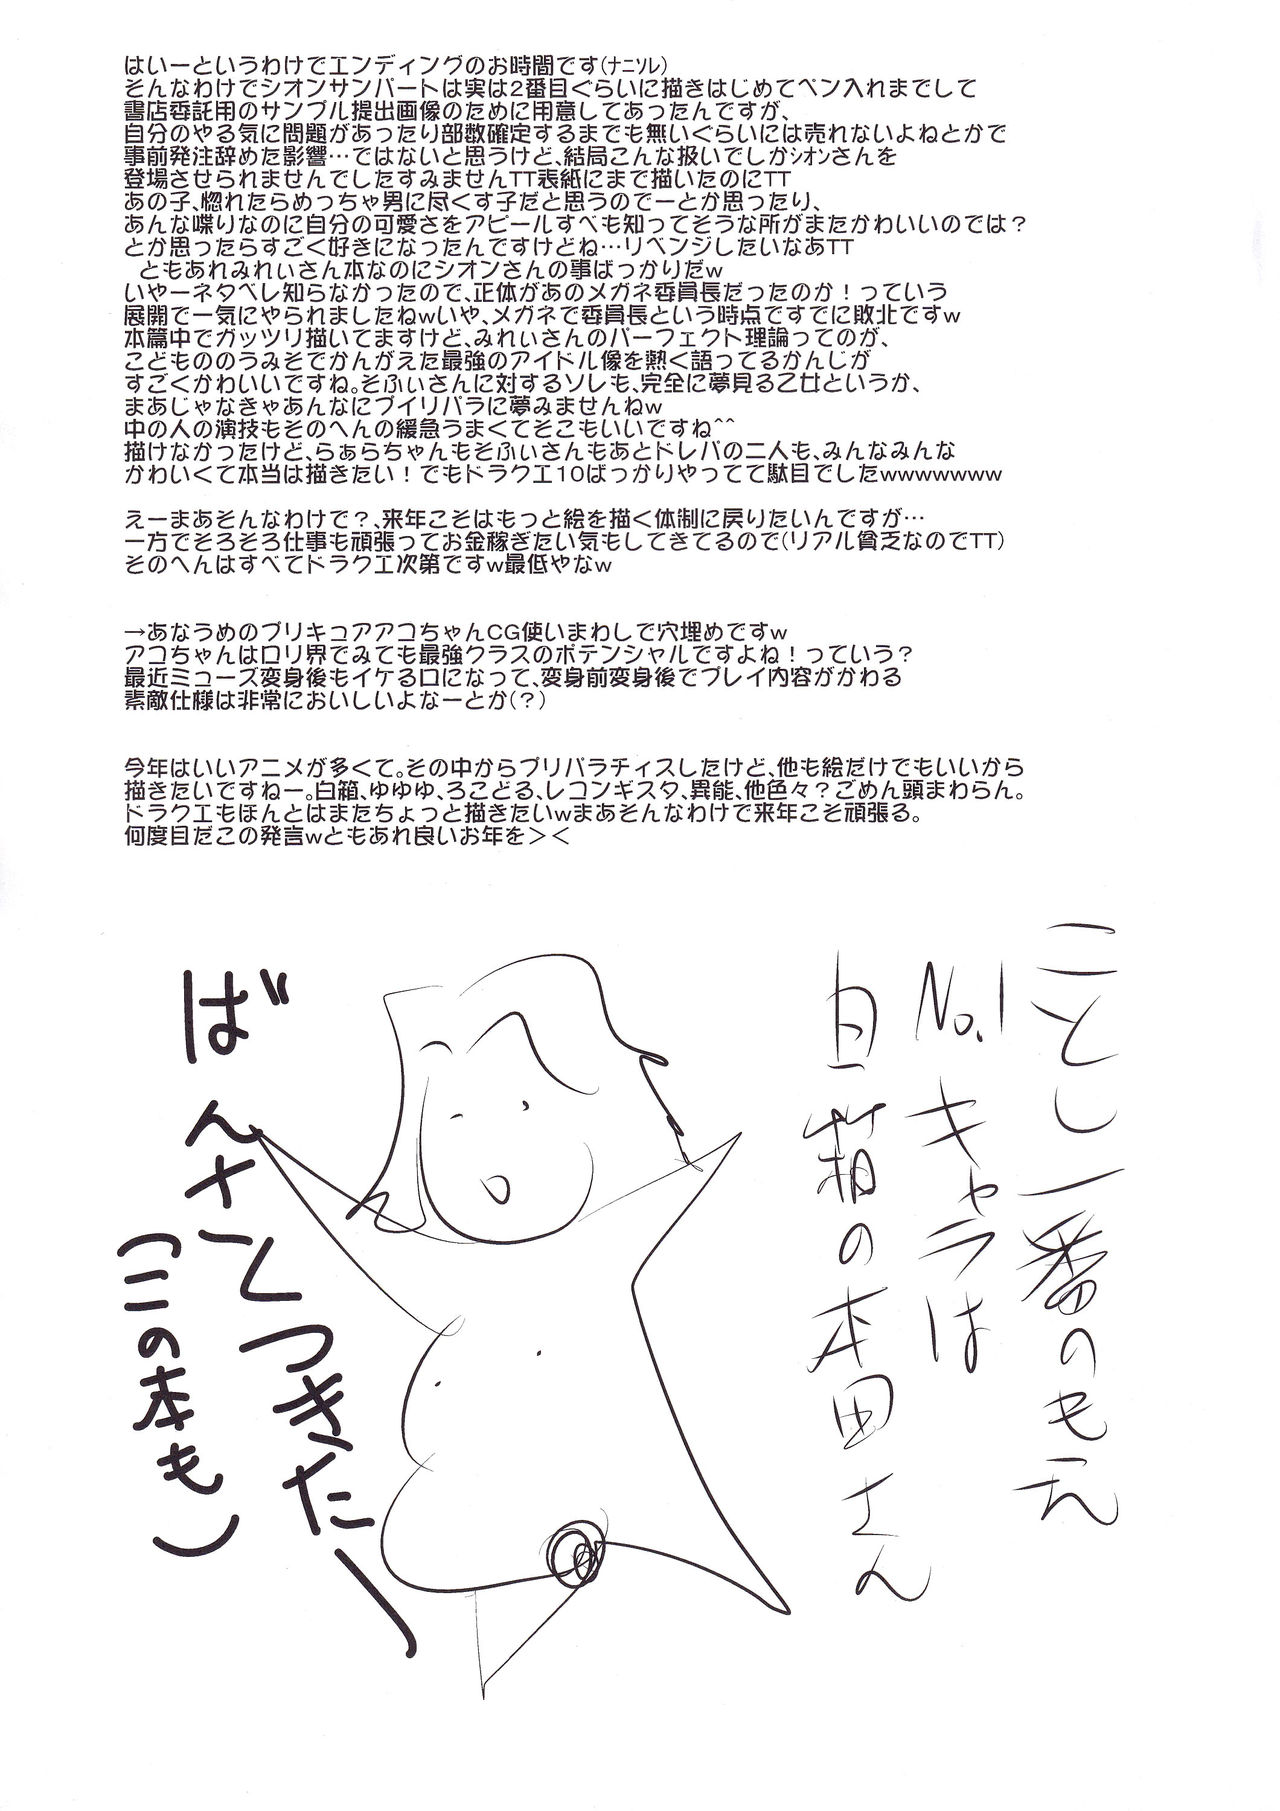 はいーというわけでエンディングのお時間です(ﾅﾆｿﾚ)
そんなわけでシオンサンパートは実は2番目ぐらいに描きはじめてペン入れまでして
書店委託用のサンプル提出画像のために用意してあったんですが、
自分のやる気に問題があったり部数確定するまでも無いぐらいには売れないよねとかで
事前発注辞めた影響…ではないと思うけど、結局こんな扱いでしかｼｵﾝさんを
登場させられませんでしたすみませんTT表紙にまで描いたのにTT
あの子、惚れたらめっちゃ男に尽くす子だと思うのでーとか思ったり、
あんな喋りなのに自分の可愛さをアピールすべも知ってそうな所がまたかわいいのでは？
とか思ったらすごく好きになったんですけどね…リベンジしたいなあTT
ともあれみれぃさん本なのにシオンさんの事ばっかりだw
いやーネタベレ知らなかったので、正体があのメガネ委員長だったのか！っていう
展開で一気にやられましたねwいや、メガネで委員長という時点ですでに敗北ですw
本篇中でガッツリ描いてますけど、みれぃさんのパーフェクト理論ってのが、
こどもののうみそでかんがえた最強のアイドル像を熱く語ってるかんじが
すごくかわいいですね。そふぃさんに対するソレも、完全に夢見る乙女というか、
まあじゃなきゃあんなにプイリパラに夢みませんねw
中の人の演技もそのへんの緩急うまくてそこもいいですね^^
描けなかったけど、らぁらちゃんもそふぃさんもあとドレパの二人も、みんなみんな
かわいくて本当は描きたい！でもドラクエ10ばっかりやってて駄目でしたwwwwwww
えーまあそんなわけで？、来年こそはもっと絵を描く体制に戻りたいんですが…
一方でそろそろ仕事も頑張ってお金稼ぎたい気もしてきてるので(リアル貧乏なのでTT)
そのへんはすべてドラクエ次第ですw最低やなw
→あなうめのプリキュアアコちゃんCG使いまわしで穴埋めですw
アコちゃんはロリ界でみても最強クラスのポテンシャルですよね！っていう？
最近ミューズ変身後もイケる口になって、変身前変身後でプレイ内容がかわる
素敵仕様は非常においしいよなーとか(？)
今年はいいアニメが多くて。その中からプリパラチィスしたけど、他も絵だけでもいいから
描きたいですねー。白箱、ゆゆゆ、ろこどる、レコンギスタ、異能、他色々？ごめん頭まわらん。
ドラクエもほんとはまたちょっと描きたいwまあそんなわけで来年こそ頑張る。
何度目だこの発言wともあれ良いお年を＞＜
ことし一番のもえ
No.1 キャラは
白箱の本田さん
ばんさくつきたー
(この本も)